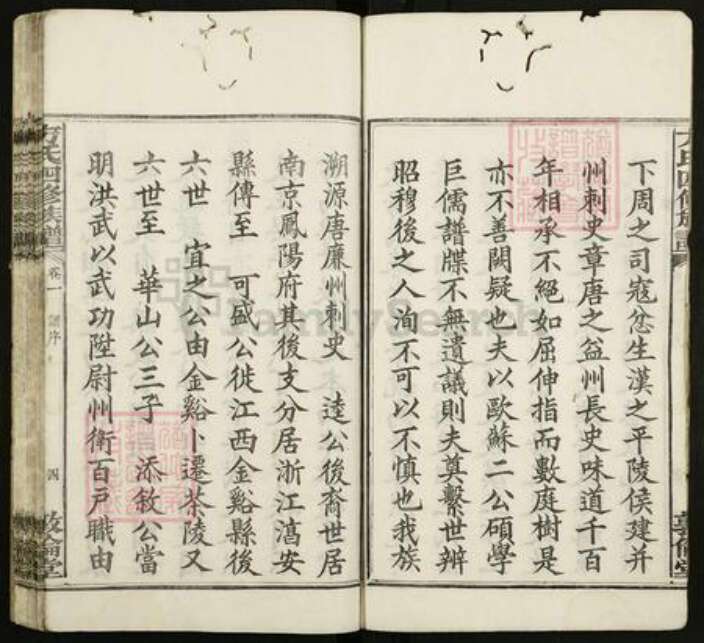 下周之司寇忿生漢之平陵侯建并
州刺史章唐之益州長史味道千百
年相承不絕如屈伸指而數庭樹是
亦不善闕疑也夫以歐蘇二公碩學
巨儒譜牒不無遺議則夫奠繫世辨
昭穆後之人洵不可以不慎也我族
溯源唐廉州刺史 逵公後裔世居
南京鳳陽府其後支分居浙江淓安
縣傳至 可盛公徙江西金谿縣後
六世 宜之公由金谿卜遷茶陵又
六世至 華山公三子 添敘公當
明洪武以武功陞尉州衛百戶職由
氏四修族譜 卷一 譜序 四 敦倫堂
FamilySearch